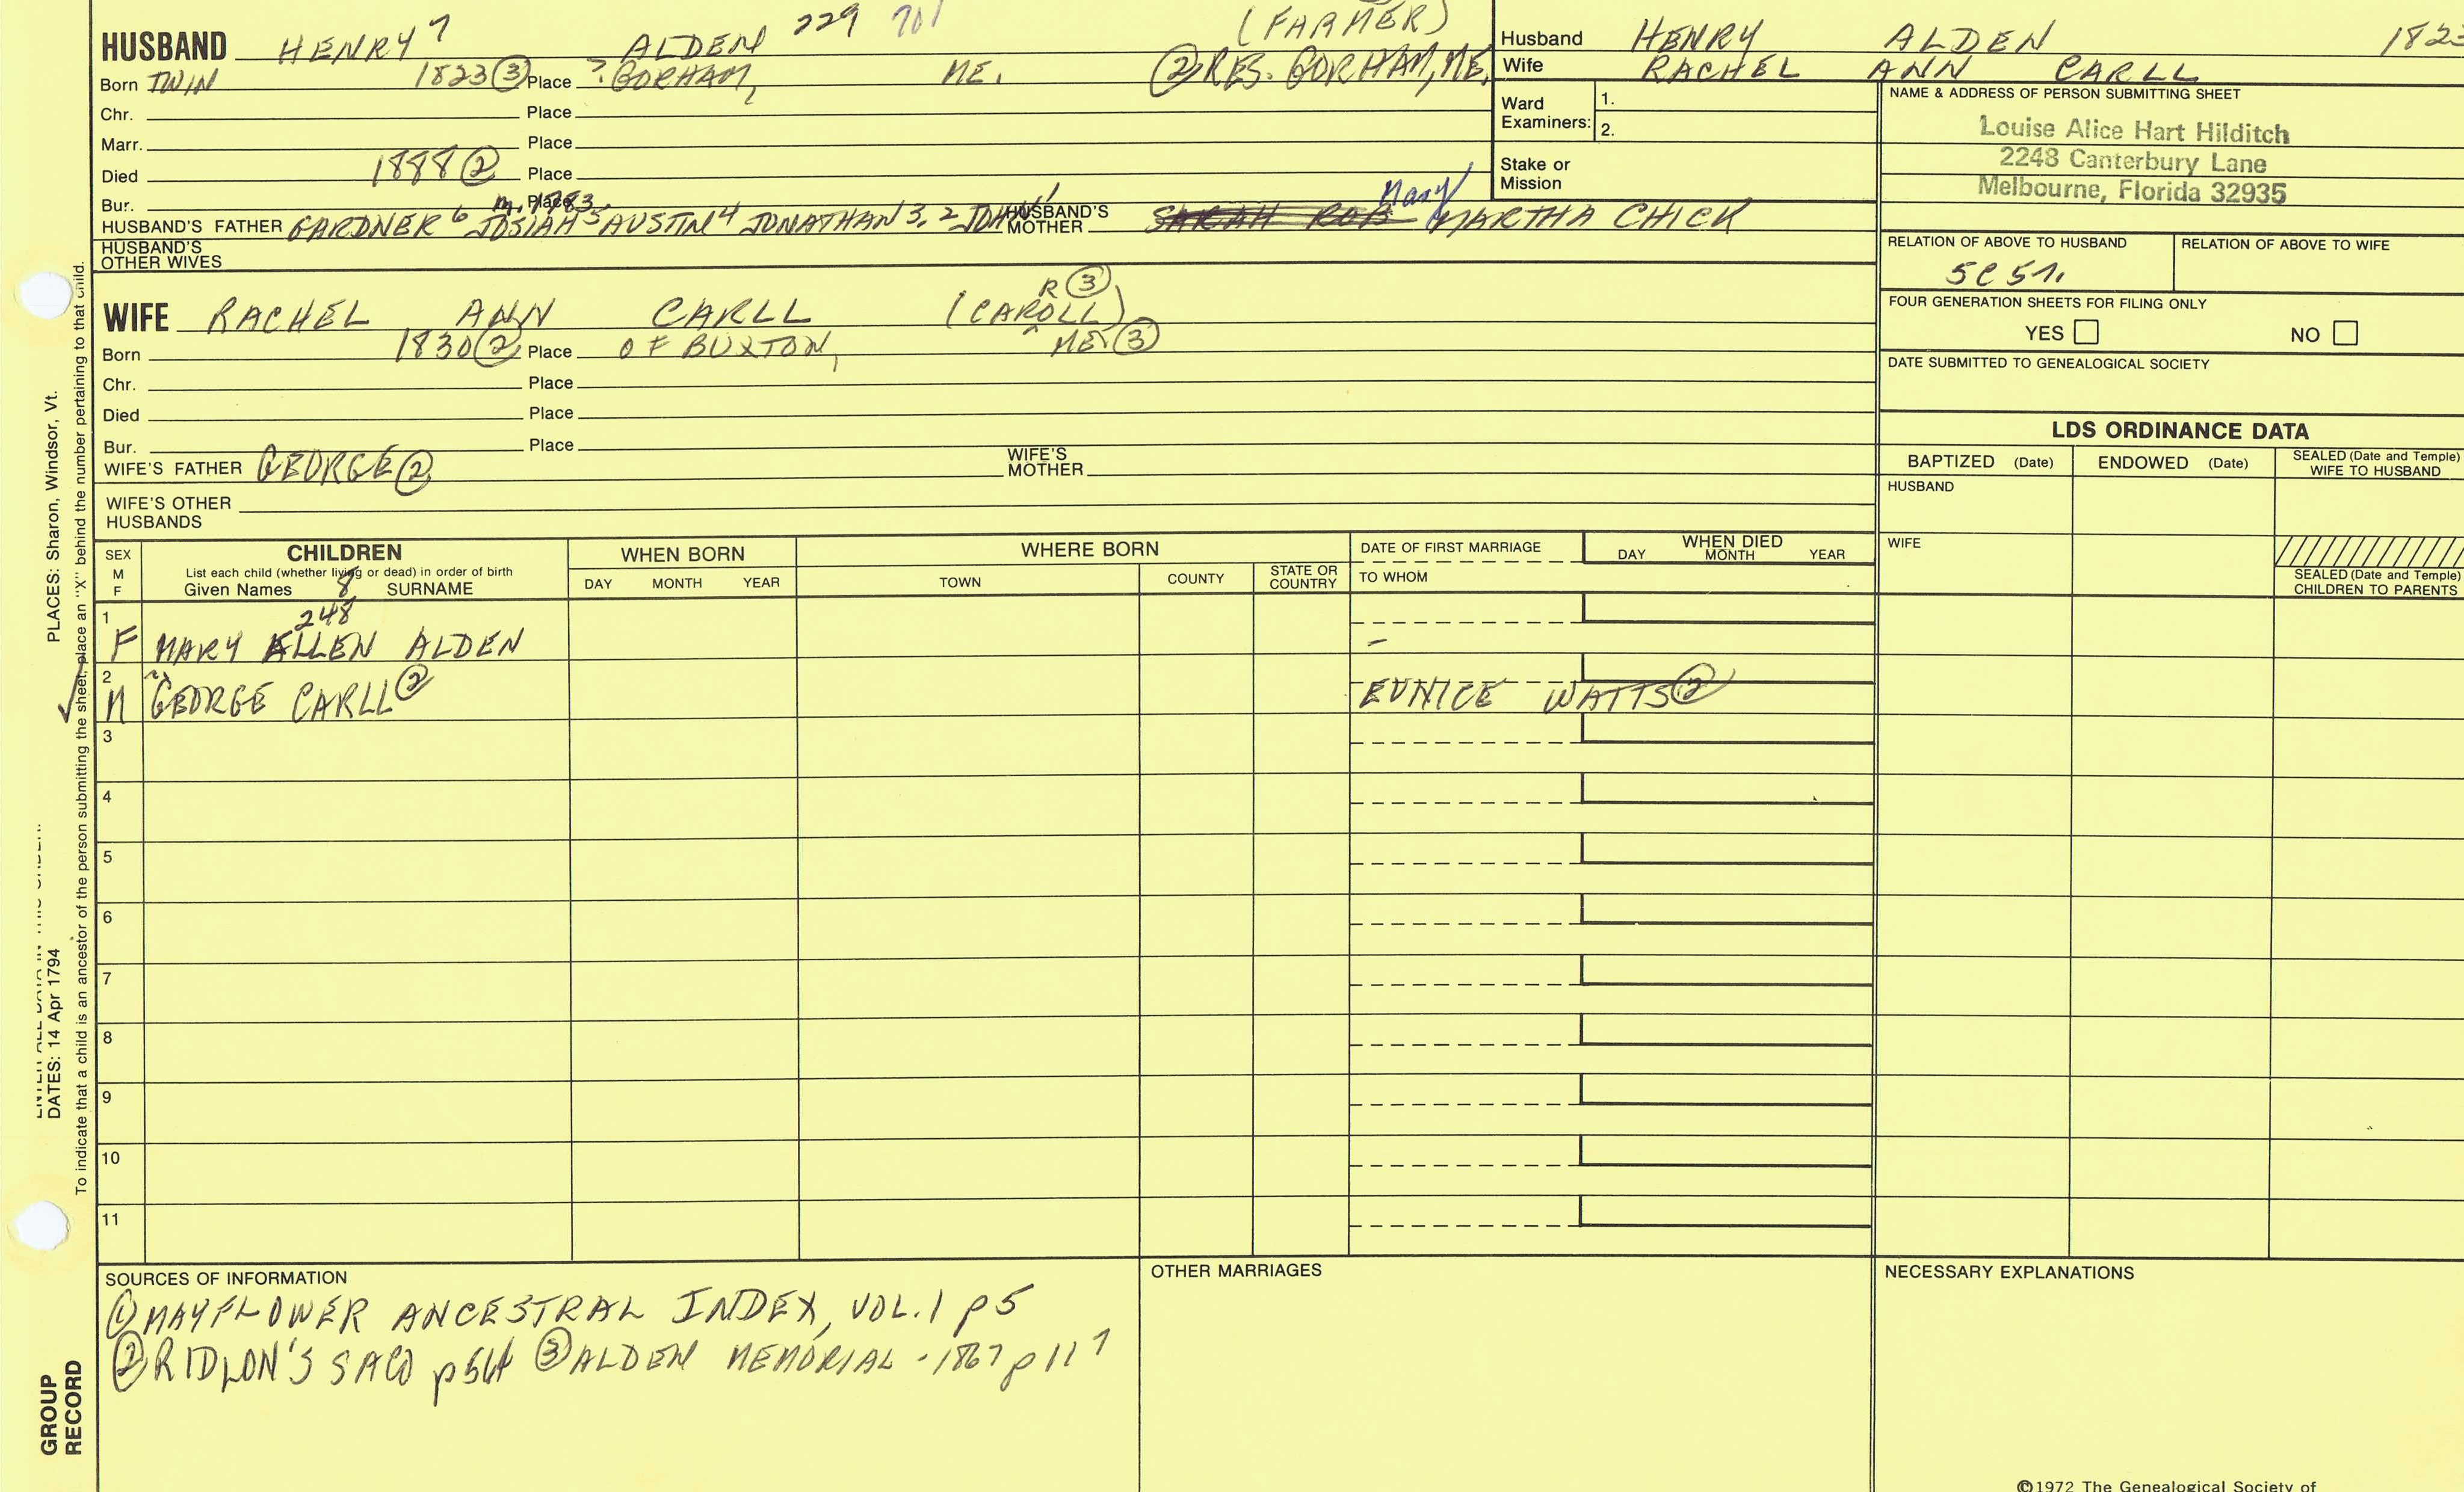 HUSBAND HENRY 7 ALDEN 229 701 (FARMER)
Born TWIN 1823 ③ Place ? GORHAM, ME. ② RES. GORHAM, ME.
Chr. Place
Marr. Place
Died 1888 ② Place
Bur. Place m. 1783
HUSBAND'S FATHER GARDNER 6 JOSIAH 5 AUSTIN 4 JONATHAN 3, 2 JOHN 1 HUSBAND'S MOTHER SARAH ROB Mary MARTHA CHICK
HUSBAND'S OTHER WIVES
Husband HENRY ALDEN 1823
Wife RACHEL ANN CARLL
Ward Examiners: 1.
2.
Stake or Mission
NAME & ADDRESS OF PERSON SUBMITTING SHEET
Louise Alice Hart Hilditch
2248 Canterbury Lane
Melbourne, Florida 32935
RELATION OF ABOVE TO HUSBAND RELATION OF ABOVE TO WIFE
5C5r.
FOUR GENERATION SHEETS FOR FILING ONLY
YES NO
DATE SUBMITTED TO GENEALOGICAL SOCIETY
WIFE RACHEL ANN CARLL (CAROLL) R ③
Born 1830 ② Place OF BUXTON, ME ③
Chr. Place
Died Place
Bur. Place
WIFE'S FATHER GEORGE ② WIFE'S MOTHER
WIFE'S OTHER HUSBANDS
LDS ORDINANCE DATA
BAPTIZED (Date) ENDOWED (Date) SEALED (Date and Temple) WIFE TO HUSBAND
HUSBAND
WIFE
SEALED (Date and Temple) CHILDREN TO PARENTS
SEX M F
CHILDREN
List each child (whether living or dead) in order of birth
Given Names 8 SURNAME
WHEN BORN
DAY MONTH YEAR
WHERE BORN
TOWN COUNTY STATE OR COUNTRY
DATE OF FIRST MARRIAGE
TO WHOM
WHEN DIED
DAY MONTH YEAR
248
1 F MARY ELLEN ALDEN –
2 M GEORGE CARLL ② EUNICE WATTS ②
3
4
5
6
7
8
9
10
11
SOURCES OF INFORMATION
① MAYFLOWER ANCESTRAL INDEX, VOL. 1 p5
② RIDLON'S SACO p564 ③ ALDEN MEMORIAL - 1867 p 117
OTHER MARRIAGES
NECESSARY EXPLANATIONS
©1972 The Genealogical Society of
PLACES: Sharon, Windsor, Vt.
DATES: 14 Apr 1794
To indicate that a child is an ancestor of the person submitting the sheet, place an "X" behind the number pertaining to that child.
GROUP RECORD